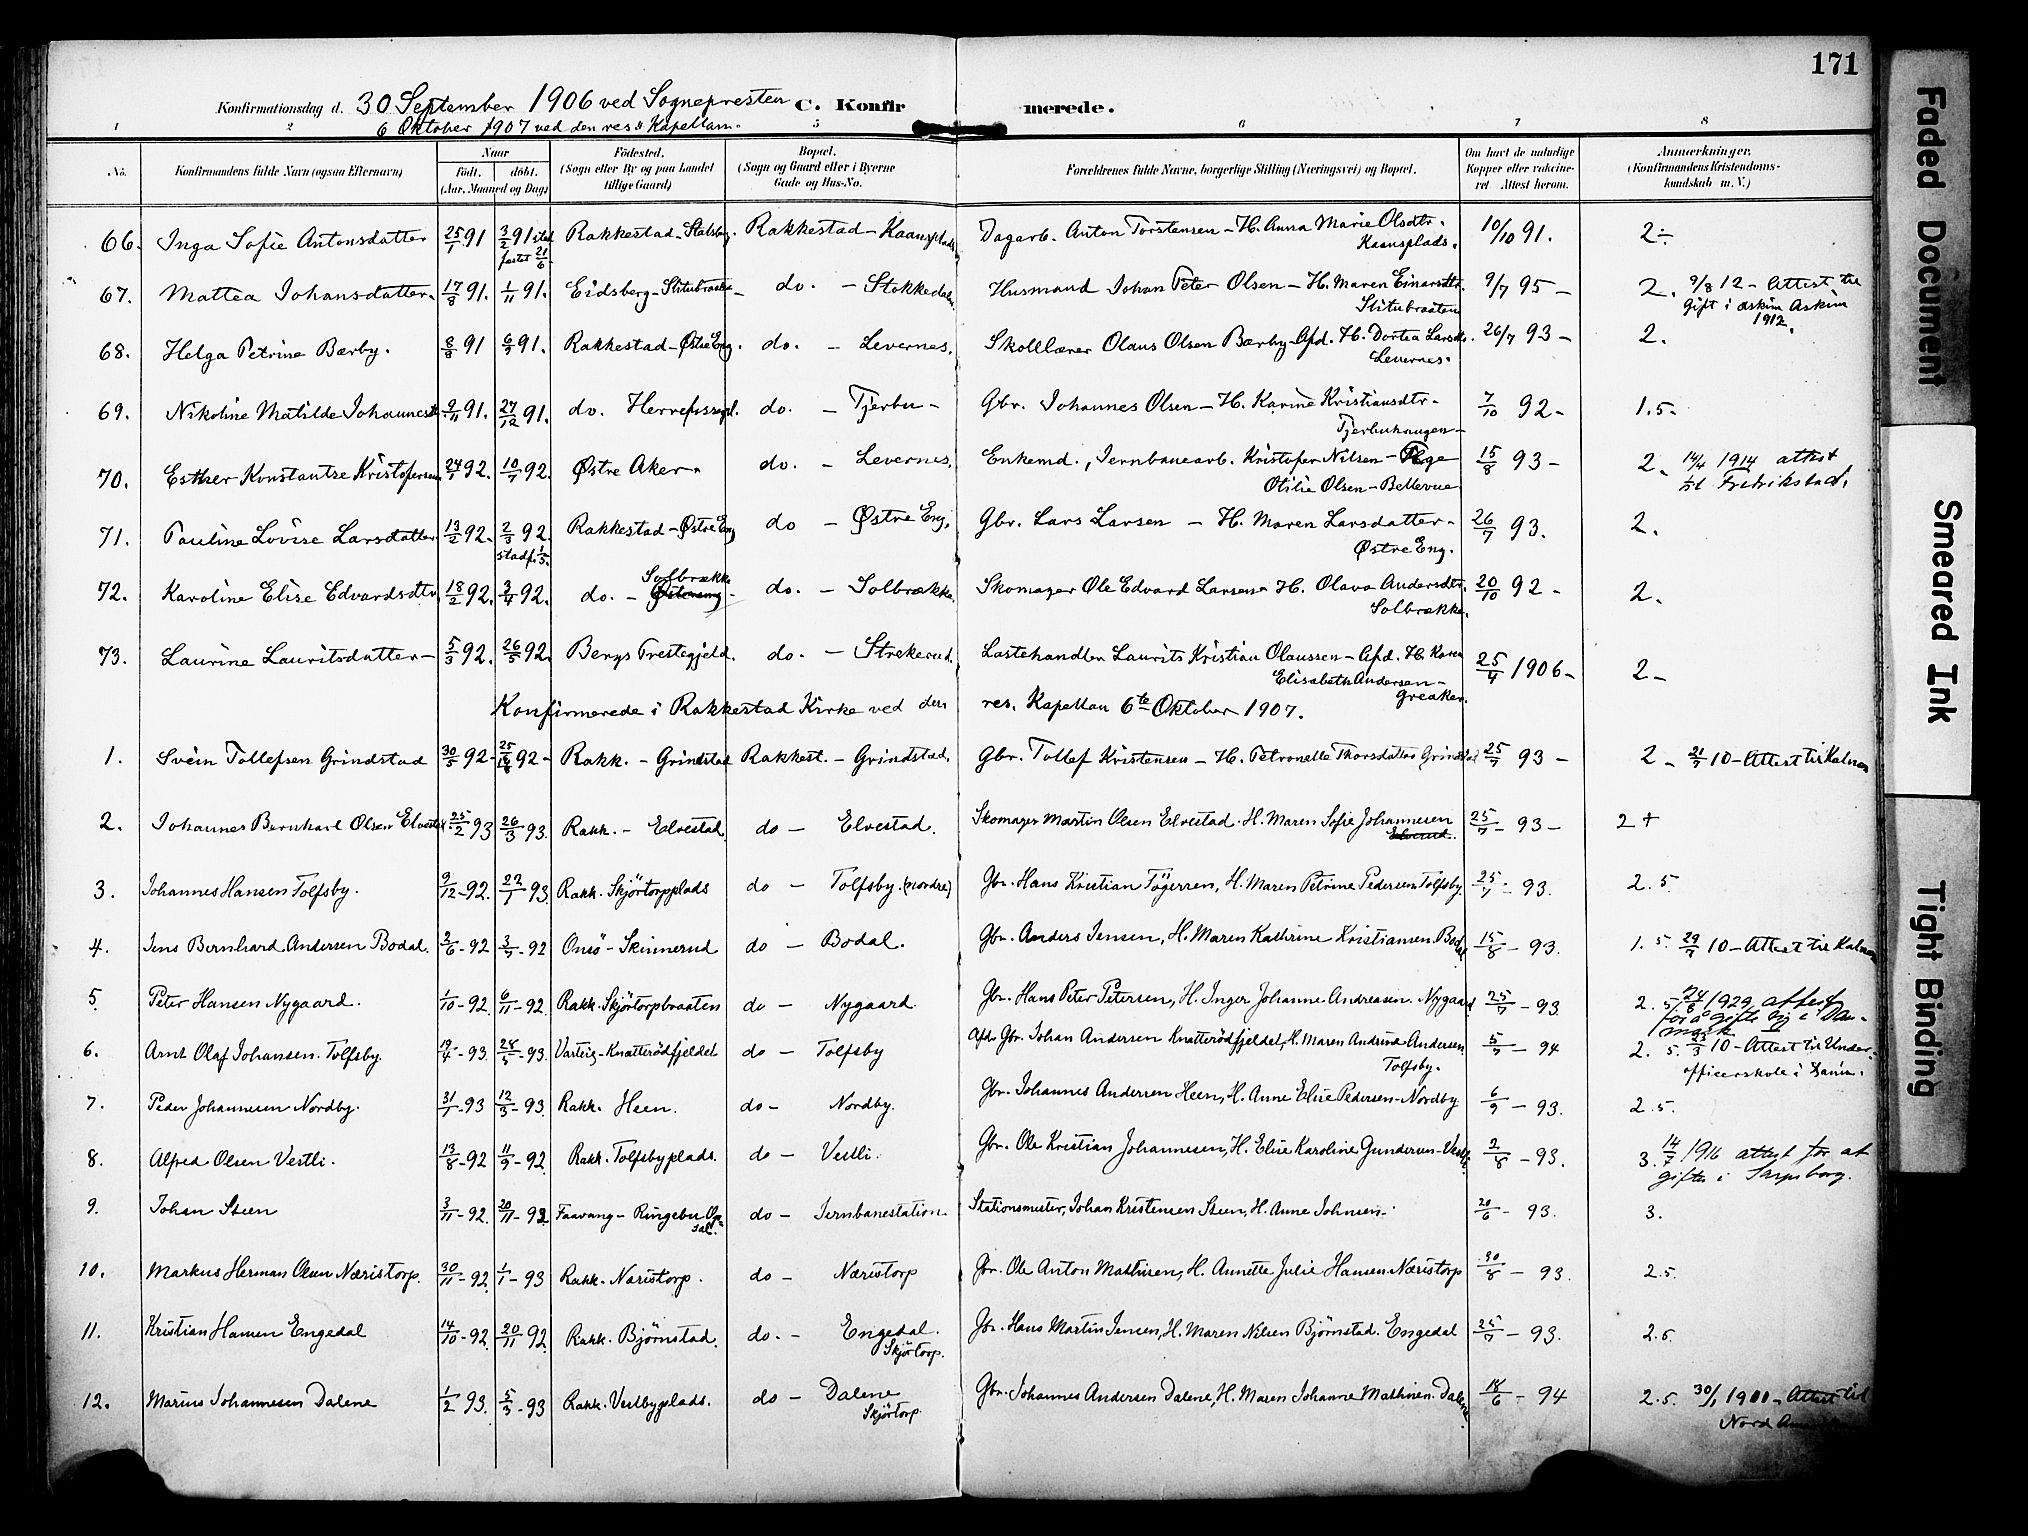 171
Konfirmationsdag d. 30 September 1906 ved Sognepresten C. Konfirmerede.
6 Oktober 1907 ved den res. Kapellan.
1 2 5 6 7 8
No. Konfirmandens fulde Navn (ogsaa Efternavn) Naar Født. døbt. (Aar, Maaned og Dag) Fødested. (Sogn eller By og paa Landet tillige Gaard) Bopæl. (Sogn og Gaard eller i Byerne Gade og Hus-No. Forældrenes fulde Navne, borgerlige Stilling (Næringsvei) og Bopæl. Om havt de naturlige Kopper eller vaccineret Attest herom. Anmærkninger. (Konfirmandens Kristendomskundskab m. V.)
66. Inga Sofie Antonsdatter 25/1 91 3/2 91 stad fæstet 21/6 Rakkestad - Rakkestad - Kaansplads Dagarb. Anton Torstensen - H. Anna Marie Olsdtr. Kaansplads. 10/10 91. 2÷
67. Mattea Johansdatter. 17/8 91. 1/11 91. Eidsberg - Slitubraaten do. - Stokkedalen Husmand Johan Peter Olsen - H. Maren Einarsdtr. Slitubraaten 9/7 95 - 2. 9/8 12 - Attest til
Gift i Askim Askim
1912.
68. Helga Petrine Bærby. 8/8 91 6/9 91. Rakkestad - Østre Eng. do. - Levernes. Skolelærer Olaus Olsen Bærby - Afd. H. Dortea Larsdtr. Levernes. 26/7 93 - 2.
69. Nikoline Matilde Johannesdtr 9/11 91. 27/12 91. do. do. - Tjerbu - Gbr. Johannes Olsen - H. Karine Kristiansdtr. Tjerbuhaugen - 7/10 92 - 1.5 -
70. Esther Konstantse Kristofersen 24/1 92. 10/7 92. Østre Aker. do. - Levernes. Enkemd., Jernbanearb. Kristofer Nilsen - Pige Otilie Olsen - Bellevue 15/8 93 - 2. 14/4 1914 attest
til Fredrikstad.
71. Pauline Lovise Larsdatter 13/2 92. 2/3 92. stadf. 1/5. Rakkestad - Østre Eng do - Østre Eng. Gbr. Lars Larsen - H. Maren Larsdatter - Østre Eng. 26/7 93. 2.
72. Karoline Elise Edvardsdtr. 18/2 92. 3/4 92. do. - Østereng Solbrække do. - Solbrække. Skomager Ole Edvard Larsen - H. Olava Andersdtr. Solbrække. 20/10 92 - 2.
73. Laurine Lauritsdatter - 5/3 92. 26/5 92. Bergs Prestegjeld. do. - Strekerud. Lastehandler Laurits Kristian Olaussen - Afd. H. Karen Elisabeth Andersen - Greaker. 25/4 1906 - 2 -
Konfirmerede i Rakkestad Kirke ved den res. Kapellan 6te Oktober 1907.
1. Svein Tollefsen Grindstad 30/5 92 - 25/18/8 92 - Rakk. - Grindstad Rakkest. - Grindstad. Gbr. Tollef Kristensen - H. Petronelle Thorsdatter Grindstad 25/7 93 - 2 - 21/7 10 - Attest til Kalmar
2. Johannes Bernhard Olsen Elvestad 25/2 93 26/3 93. Rakk. - Elvestad. do - Elvestad. Skomager Martin Olsen Elvestad. H. Maren Sofie Johannesen 25/7 - 93 - 2 +
3. Johannes Hansen Tolfsby. 9/12 - 92. 22/1 93. Rakk. Skjörtorpplads do - Tolfsby. (nordre) Gbr. Hans Kristian Töyersen, H. Maren Petrine Pedersen Tolfsby. 25/7 - 93. 2.5
4. Jens Bernhard Andersen Bodal. 2/6 - 92 3/7 - 92 Onsö - Skinnerud do - Bodal. Gbr. Anders Jensen, H. Maren Kathrine Kristiansen. Bodal 15/8 - 93. 1.5. 29/7 10 - Attest til Kalmar
5 Peter Hansen Nygaard. 1/10 - 92 6/11 - 92. Rakk. Skjörtorpbraaten do - Nygaard Gbr. Hans Peter Petersen, H. Inger Johanne Andreasen. Nygaard 25/7 - 93. 2.5 24/8 1929 attest
for å gifte sig i Dan-
mark
6. Arnt Olaf Johansen. Tolfsby. 19/4 - 93. 28/5 - 93. Varteig - Knatterödfjeldet do - Tolfsby Afd. Gbr. Johan Andersen Knatterödfjeldet, H. Maren Andrine Andersen. Tolfsby. 5/7 - 94 2.5. 23/3 10 - Attest til Under-
officerskole i
7. Peder Johannesen Nordby. 31/1 - 93 12/3 - 93. Rakk. Heen. do - Nordby. Gbr. Johannes Andersen Heen, H. Anne Elise Pedersen - Nordby 6/9 - 93. 2.5.
8. Alfred Olsen Vestli. 13/8 - 92 11/9 - 92. Rakk. Tolfsbyplads. do - Vestli. Gbr. Ole Kristian Johannesen, H. Elise Karoline Gundersen - Vestli 2/8 - 93. 3. 14/7 1916 attest for at
gifte i Sarpsborg.
9. Johan Steen 3/11 - 92. 20/11 - 92. Faavang - Ringebu Op- sal. do - Jernbanestation Stationsmester, Johan Kristensen Steen, H. Anne Johnsen - 20/6 - 93. 3.
10. Markus Herman Olsen Næristorp. 30/11 - 92. 1/1 - 93 Rakk. Næristorp. do - Næristorp Gbr. Ole Anton Mathisen, H. Annette Julie Hansen Næristorp 30/8 - 93. 2.5.
11. Kristian Hansen Engedal 14/10 - 92. 20/11 92. Rakk. Bjørnstad. do. - Engedal. Skjörtorp. Gbr. Hans Martin Jensen, H. Maren Nilsen Bjørnstad. Engedal 25/7 - 93. 2.5.
12. Marius Johannesen Dalene 1/2 93. 5/3 - 93 Rakk. Vestbyplads. do - Dalene Skjörtorp. Gbr. Johannes Andersen Dalene, H. Maren Johanne Mathisen. Dalene 18/6 - 94 2.5. 30/1 1911 - Attest til
Nord
Faded Document
Smeared Ink
Tight Binding